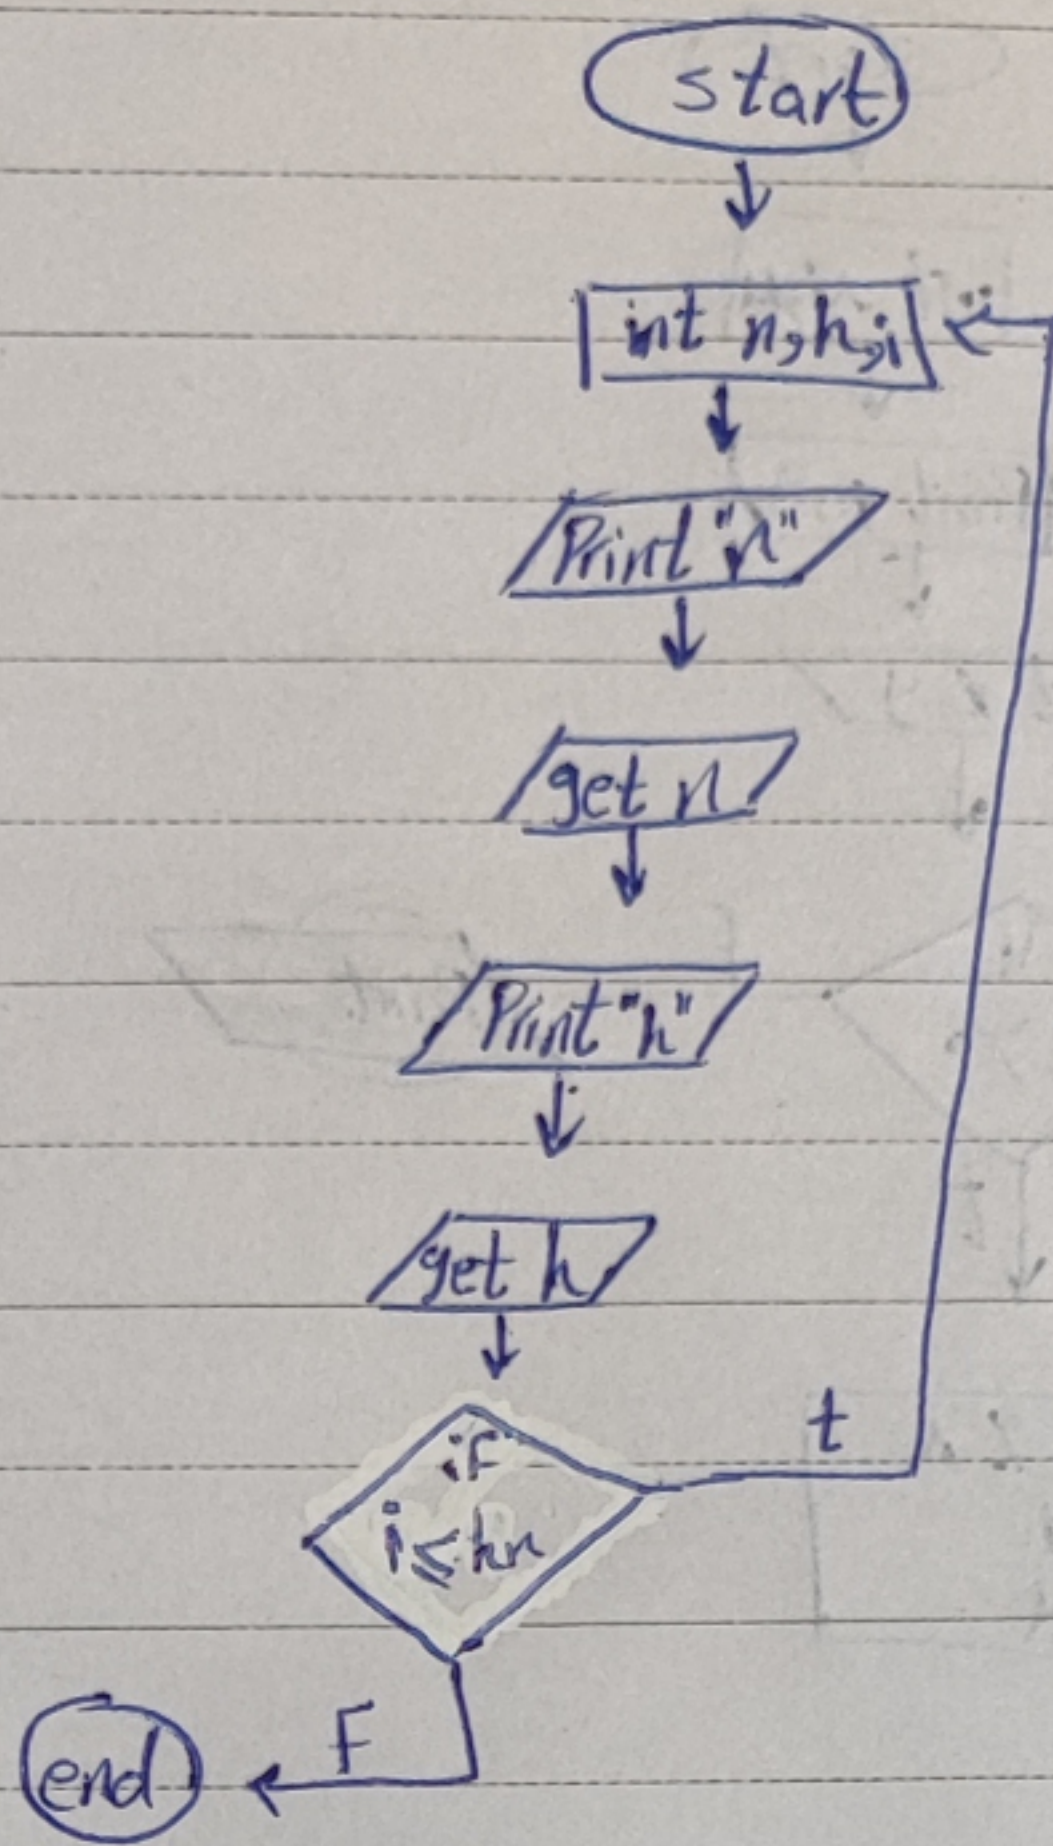 start
int n,h,i
Print "n"
get n
Print "h"
get h
if
i≤hn
t
F
end